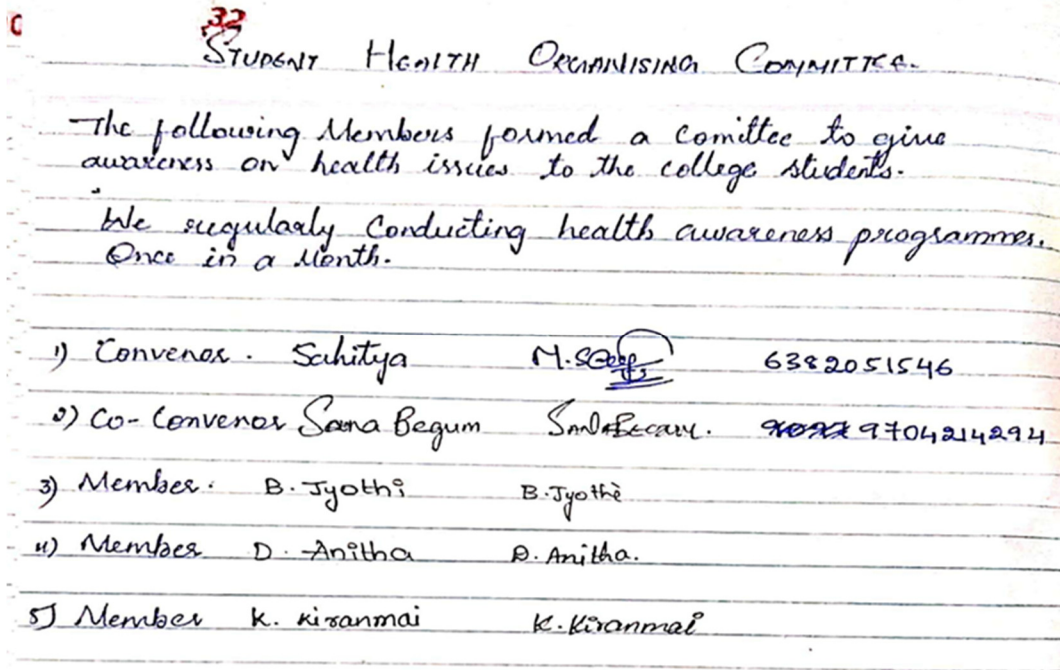 32
STUDENT HEALTH ORGANISING COMMITTEE.
The following Members formed a comittee to give
awareness on health issues to the college students.
We regularly Conducting health awareness programmes.
Once in a Month.
1) Convenor. Sahitya 6382051546
2) Co-Convenor Sana Begum 9704214294
3) Member. B. Jyothi B. Jyothi
4) Member D. Anitha D. Anitha.
5) Member K. Kiranmai K. Kiranmai